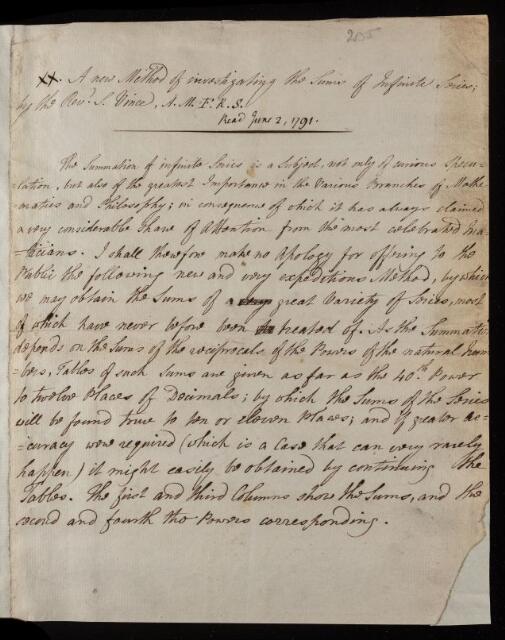 205
XX. A new Method of investigating the Sums of Infinite Series;
by the Revd. S. Vince, A.M. F.R.S.
Read June 2, 1791.
The Summation of infinite Series is a Subject, not only of curious Specu=
=lation, but also of the greatest Importance in the various Branches of Mathe=
=matics and Philosophy; in consequence of which it has always claimed
a very considerable share of Attention from the most celebrated Ma=
=ticians. I shall therefore make no Apology for offering to the
Public the following new and very expeditious Method, by which
we may obtain the Sums of a very great Variety of Series, most
of which have never before been treated of. As the Summation
depends on the Sums of the reciprocals of the Powers of the natural Num=
bers, Tables of such Sums are given as far as the 40th Power
to twelve Places of Decimals; by which the Sums of the Series
will be found true to ten or eleven Places; and if greater ac=
=curacy were required (which is a Case that can very rarely
happen) it might easily be obtained by continuing the
Tables. The first and third Columns show the Sums, and the
second and fourth the Powers corresponding.